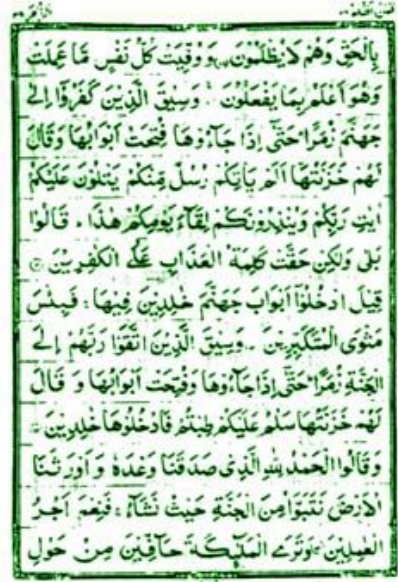 بِالْحَقِّ وَهُمْ لَا يُظْلَمُونَ وَوُفِّيَتْ كُلُّ نَفْسٍ مَّا عَمِلَتْ
وَهُوَ اَعْلَمُ بِمَا يَفْعَلُونَ وَسِيقَ الَّذِيْنَ كَفَرُوْٓا اِلٰى
جَهَنَّمَ زُمَرًا حَتّٰٓى اِذَا جَآءُوْهَا فُتِحَتْ اَبْوَابُهَا وَقَالَ
لَهُمْ خَزَنَتُهَآ اَلَمْ يَاْتِكُمْ رُسُلٌ مِّنْكُمْ يَتْلُوْنَ عَلَيْكُمْ
اٰيٰتِ رَبِّكُمْ وَيُنْذِرُوْنَكُمْ لِقَآءَ يَوْمِكُمْ هٰذَا قَالُوْا
بَلٰى وَلٰكِنْ حَقَّتْ كَلِمَةُ الْعَذَابِ عَلَى الْكٰفِرِيْنَ
قِيْلَ ادْخُلُوْٓا اَبْوَابَ جَهَنَّمَ خٰلِدِيْنَ فِيْهَا فَبِئْسَ
مَثْوَى الْمُتَكَبِّرِيْنَ وَسِيْقَ الَّذِيْنَ اتَّقَوْا رَبَّهُمْ اِلَى
الْجَنَّةِ زُمَرًا حَتّٰٓى اِذَا جَآءُوْهَا وَفُتِحَتْ اَبْوَابُهَا وَقَالَ
لَهُمْ خَزَنَتُهَا سَلٰمٌ عَلَيْكُمْ طِبْتُمْ فَادْخُلُوْهَا خٰلِدِيْنَ
وَقَالُوا الْحَمْدُ لِلّٰهِ الَّذِيْ صَدَقَنَا وَعْدَهٗ وَاَوْرَثَنَا
الْاَرْضَ نَتَبَوَّاُ مِنَ الْجَنَّةِ حَيْثُ نَشَآءُ فَنِعْمَ اَجْرُ
الْعٰمِلِيْنَ وَتَرَى الْمَلٰٓئِكَةَ حَآفِّيْنَ مِنْ حَوْلِ